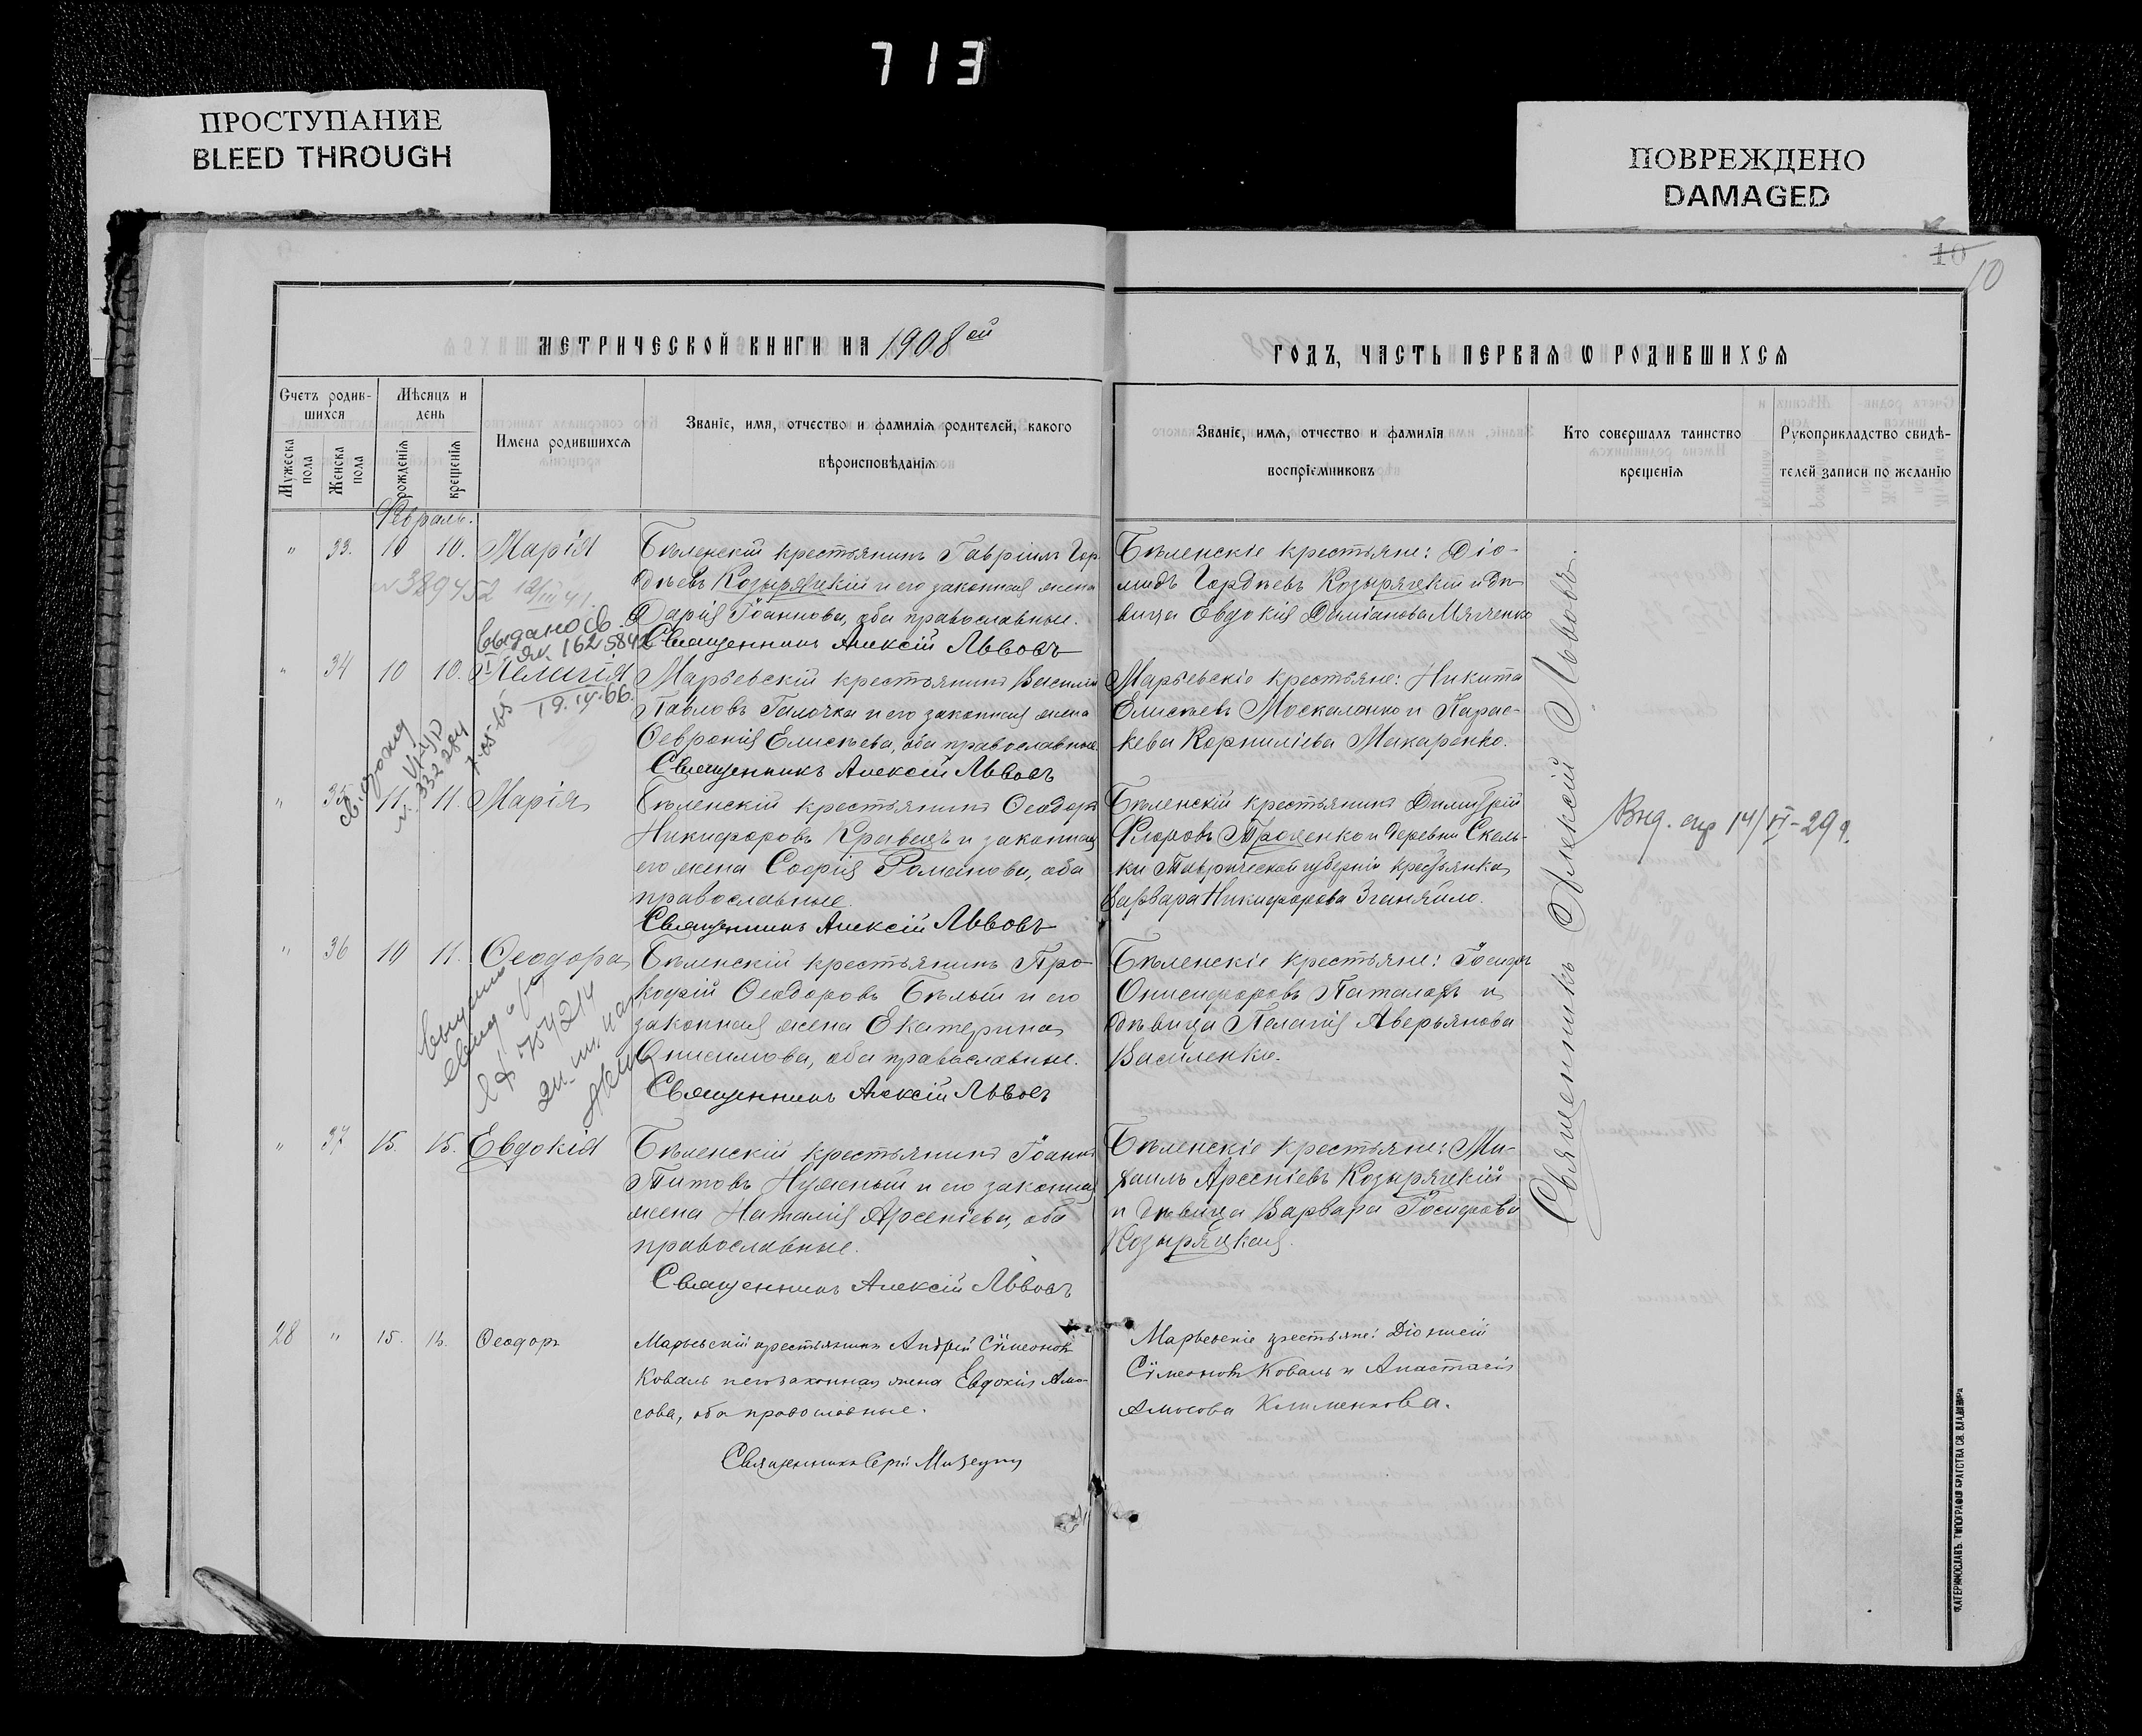 713
ПРОСТУПАНИЕ
BLEED THROUGH
ПОВРЕЖДЕНО
DAMAGED
10
10
МЕТРИЧЕСКОЙ КНИГИ НА 1908 ой
ГОДЪ, ЧАСТЬ ПЕРВАЯ Ѡ РОДИВШИХСЯ
Счетъ родив-
шихся
Мужеска пола
Женска пола
Мѣсяцъ и
день
рожденія
крещенія
Имена родившихся
Званіе, имя, отчество и фамилія родителей, какого
вѣроисповѣданія
Званіе, имя, отчество и фамилія
воспріемниковъ
Кто совершалъ таинство
крещенія
Рукоприкладство свидѣ-
телей записи по желанію
Февраль.
" 33. 10 10. Марія
Бѣленскій крестьянинъ Гавріилъ Гор-
дѣевъ Козыряцкій и его законная жена
Дарія Іоаннова, оба православные.
Священникъ Алексій Львовъ
Бѣленскіе крестьяне: Діо-
мидъ Гордѣевъ Козыряцкій и дѣ-
вица Евдокія Даміанова Мягченко
N 389452 12/III 41
Выдано св.
162584
19.IV.66.
" 34 10 10. Пелагія
Марьевскій крестьянинъ Василій
Павловъ Галочка и его законная жена
Ѳевронія Елисѣева, оба православные.
Священникъ Алексій Львовъ
Марьевскіе крестьяне: Никита
Елисѣевъ Москаленко и Парас-
кева Корниліева Макаренко.
332284
" 35 11. 11. Марія
Бѣленскій крестьянинъ Ѳеодоръ
Никифоровъ Кравецъ и законная
его жена Софія Романова, оба
православные.
Священникъ Алексій Львовъ
Бѣленскій крестьянинъ Димитрій
Флоровъ Троценко и деревни Скель-
ки Таврической губерніи крестьянка
Варвара Никифорова Зганяйло.
Выд. 14/VI-29 г.
" 36 10 11. Ѳеодора
Бѣленскій крестьянинъ Про-
кофій Ѳеодоровъ Бѣлый и его
законная жена Екатерина
Онисимова, оба православные.
Священникъ Алексій Львовъ
Бѣленскіе крестьяне: Іосифъ
Онисифоровъ Паталахъ и
дѣвица Пелагія Аверьянова
Василенко.
" 37 15. 15. Евдокія
Бѣленскій крестьянинъ Іоаннъ
Титовъ Нужный и его законная
жена Наталія Арсеніева, оба
православные.
Священникъ Алексій Львовъ
Бѣленскіе крестьяне: Ми-
хаилъ Арсеніевъ Козыряцкій
и дѣвица Варвара Іосифова
Козыряцкая.
Священникъ Алексій Львовъ.
28 " 15. Ѳеодоръ
Марьевскій крестьянинъ Андрей Сѵмеоновъ
Коваль и его законная жена Евдокія Амо-
сова, оба православные.
Марьевскіе крестьяне: Діонисій
Сѵмеоновъ Коваль и Анастасія
Амосова Клименкова.
ЕКАТЕРИНОСЛАВЪ. ТИПОГРАФІЯ БРАТСТВА СВ. ВЛАДИМІРА